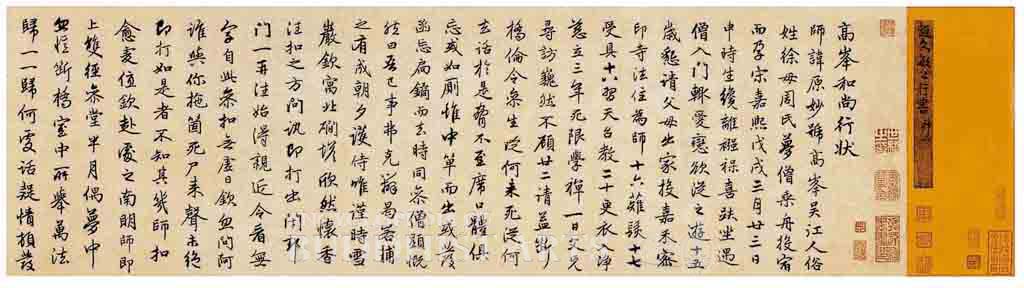 趙文敏公行書
高峯和尚行狀
師諱原妙號高峯吳江人俗
姓徐母周氏夢僧乘舟投宿
而孕宋嘉熙戊戌三月廿三日
申時生纔離襁褓喜趺坐遇
僧入門輙愛戀欲從之遊十五
歲懇請父母出家投嘉禾密
印寺法住為師十六薙髮十七
受具十八習天台教二十更衣入淨
慈立三年死限學禪一日父兄
尋訪巍然不顧廿二請益斷
橋倫令參生從何來死從何
去話於是脅不至席口體俱
忘或如廁惟中單而出或發
函忘扃鐍而去時同參僧顯慨
然曰吾已事弗克辦曷若輔
之有成朝夕護侍惟謹時雪
巖欽寓北磵塔欣然懷香
往扣之方問訊即打出閉却
門一再往始得親近令看無
字自此參扣無虛日欽忽問阿
誰與你拖箇死尸來聲未絕
即打如是者不知其幾師扣
愈虔值欽赴處之南明師即
上雙徑參堂半月偶夢中
忽憶斷橋室中所舉萬法
歸一一歸何處話疑情頓發
BUDDHIST ARTS